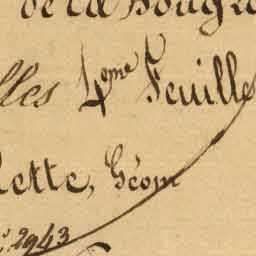 de la
lles 4eme Feuille
lette, Géom
2943